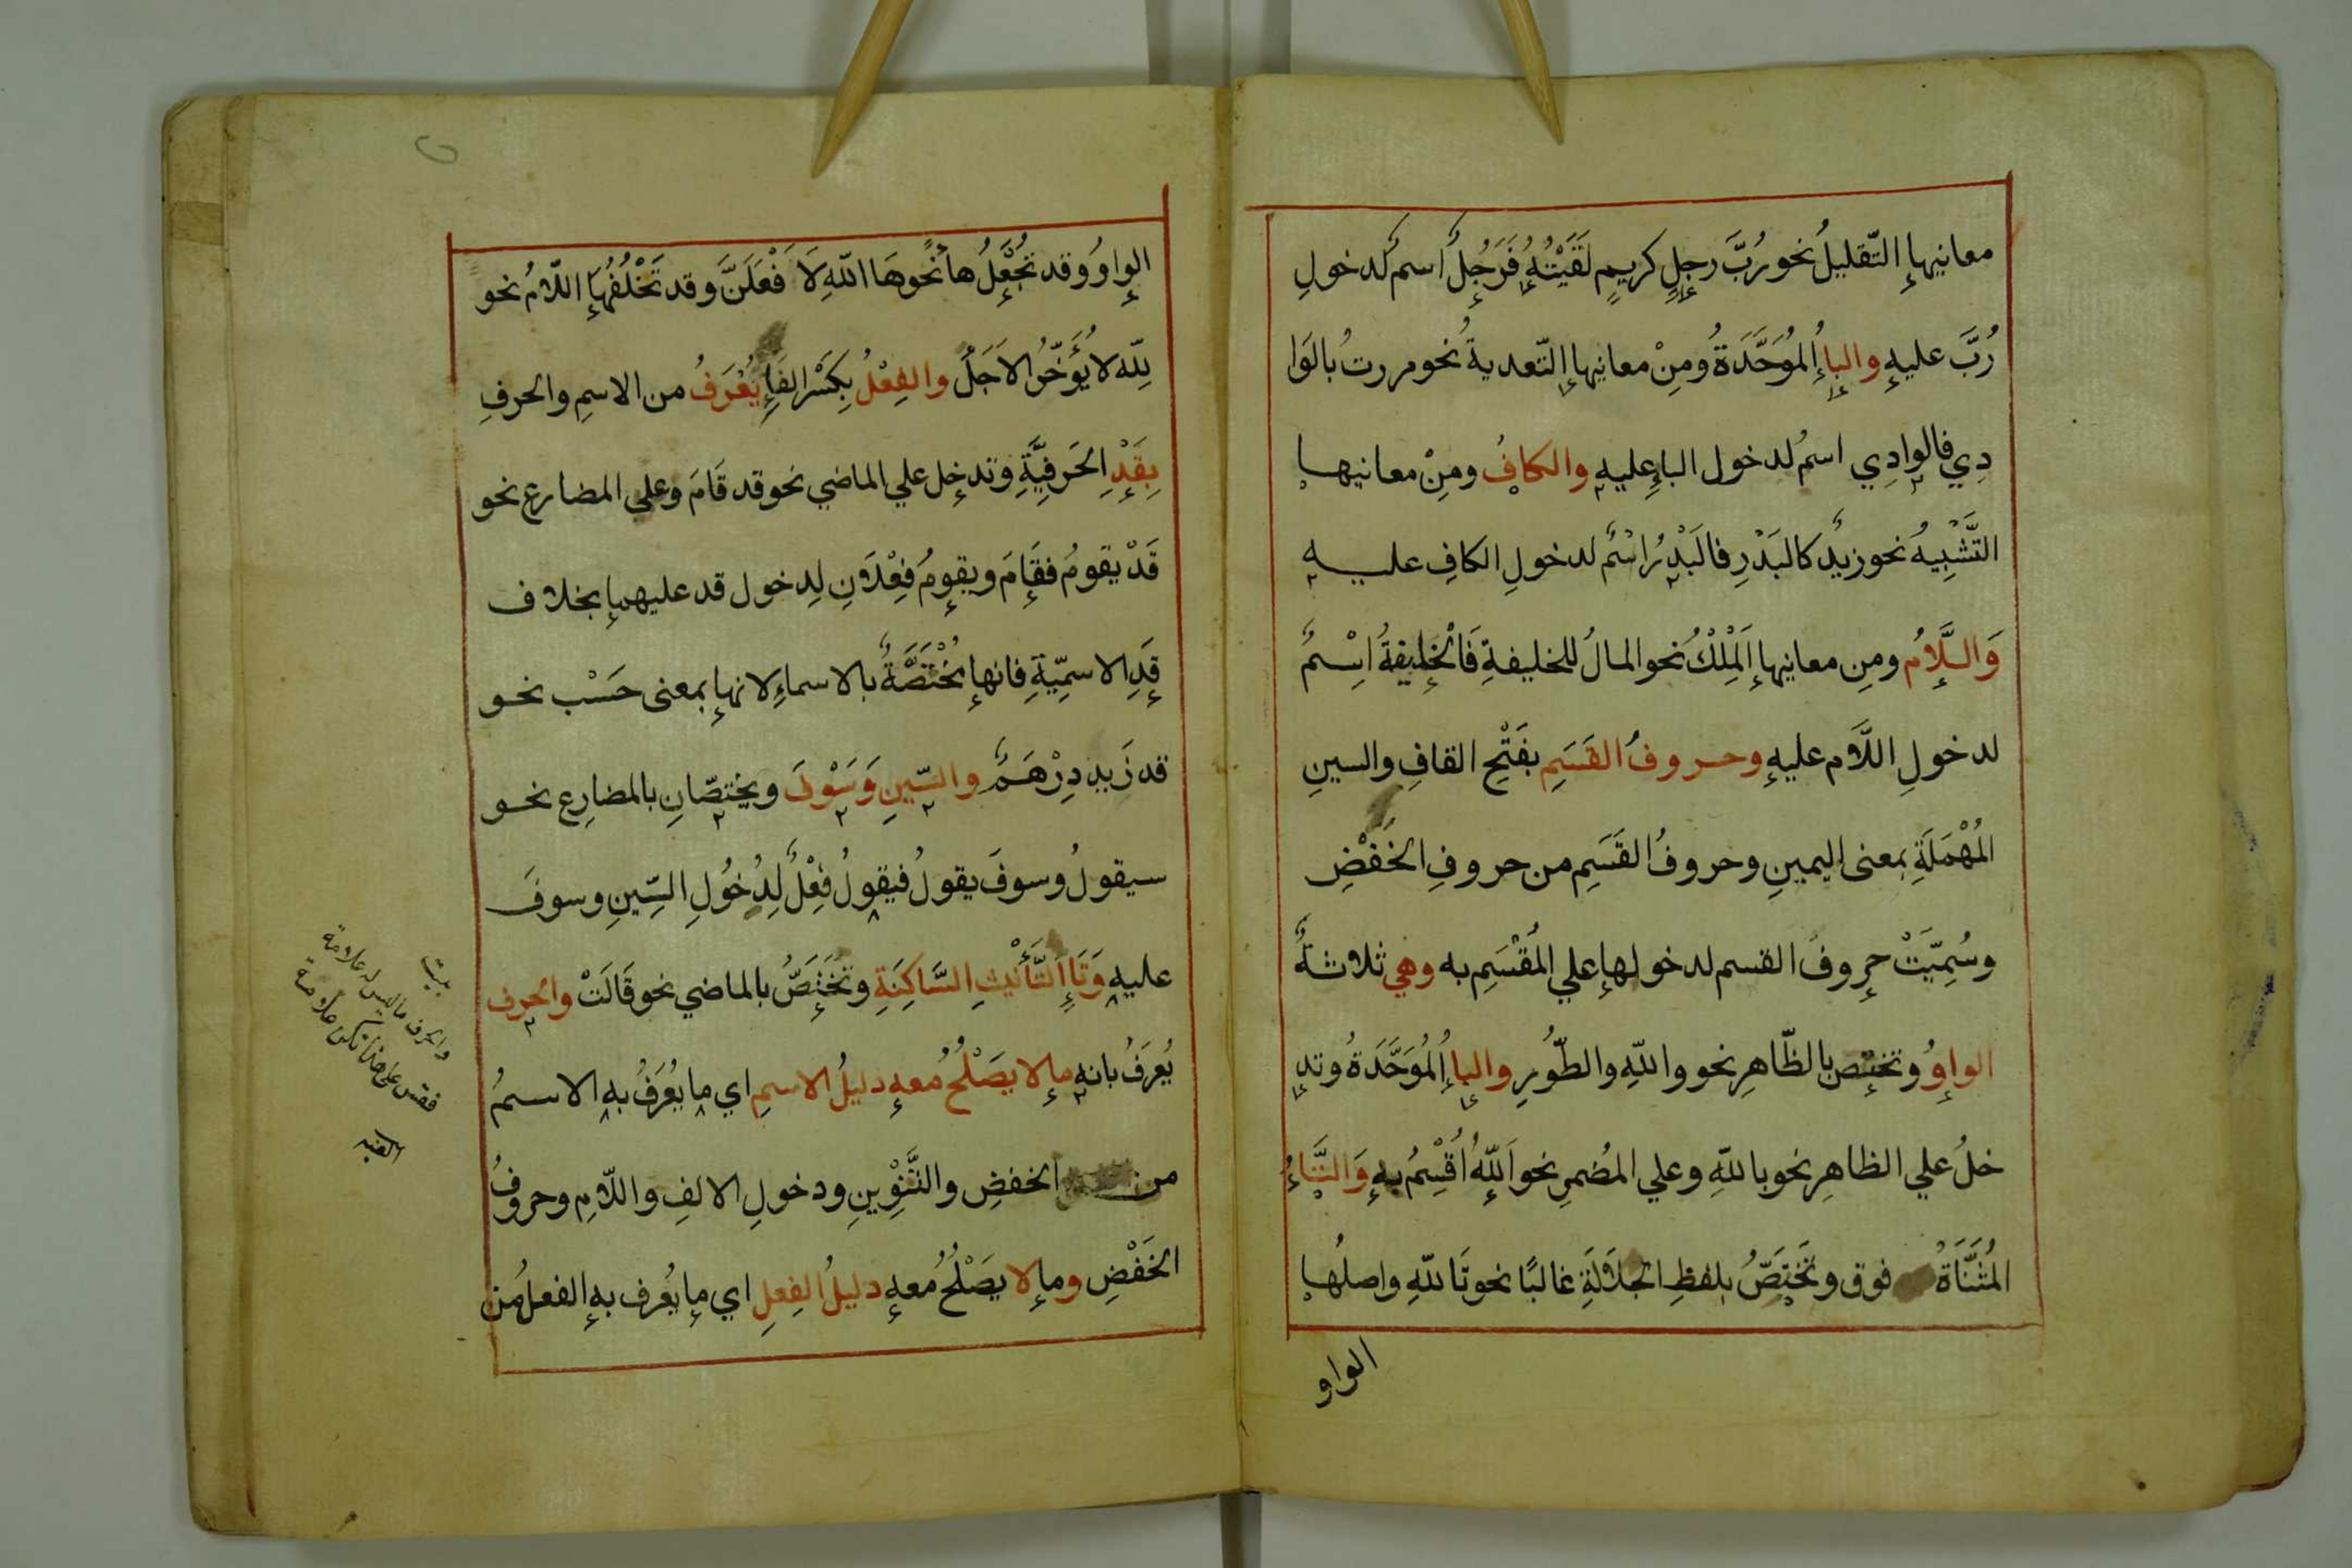 معانيها التّقليلُ نحو رُبَّ رجلٍ كريمٍ لَقَيْتُهُ فَرَجُلٌ اسمٌ لدخولِ
رُبَّ عليهِ والباءُ المُوَحَّدَةُ ومِنْ معانيها التّعديةُ نحو مررتُ بالوَا
دِي فالوادِي اسمٌ لدخول الباءِ عليهِ والكافُ ومِنْ معانيها
التَّشْبِيهُ نحو زيدٌ كالبَدْرِ فالبَدْرُ اسْمٌ لدخولِ الكافِ عليه
وَاللَّامُ ومِن معانيها اَلمِلْكُ نحو المالُ للخليفةِ فَالْخليفةُ اِسْمٌ
لدخولِ اللَّام عليهِ وحروفُ القَسَمِ بفَتْحِ القافِ والسينِ
المُهْمَلَةِ بمعنى اليمينِ وحروفُ القَسَمِ من حروفِ الخَفْضِ
وسُمِّيَتْ حروفَ القسم لدخولها علي المُقْسَمِ به وهي ثلاثةٌ
الواوُ وتختص بالظّاهِرِ نحو واللّهِ والطّورِ والباءُ المُوَحَّدَةُ وتد
خلُ علي الظاهِرِ نحو باللّهِ وعلي المُضمرِ نحو اَللّهُ اُقْسِمُ بهِ وَالتَّاءُ
المُثَنَّاةُ فوق وتَخْتَصُّ بلفظِ الجَلَالَةِ غالبًا نحو تَاللّهِ واصلُها
الواو
الواوُ وقد تُجْعَلُ هاً نحو هَا اللّهِ لَا فْعَلَنَّ وقد تَخْلُفُهَا اللّامُ نحو
لِلّهِ لا يُؤَخَّرُ الاَجَلُ والفِعْلُ بِكَسْرِ الفَاءِ يُعْرَفُ من الاسمِ والحرفِ
بِقَدِ الحَرفِيَّةِ وتدخل علي الماضي نحو قد قَامَ وعلي المضارع نحو
قَدْ يقومُ فقَامَ ويقومُ فِعْلَانِ لِدخول قد عليهما بخلاف
قَدِ الاسمِيّةِ فانها مُخْتَصَّةٌ بالاسماءِ لانها بمعنى حَسْب نحو
قد زَيد دِرْهَمٌ والسّينِ وَسَوْفَ ويختصّانِ بالمضارِع نحو
سيقولُ وسوفَ يقولُ فيقولُ فِعْلٌ لِدُخُولِ السِّينِ وسوفَ
عليهِ وَتَاءِ التَّأْنِيثِ السَّاكِنَةِ وتَخْتَصُّ بالماضي نحو قَالَتْ والحرف
يُعرَفُ بانه ما لا يصَلُحُ معه دليلُ الاسمِ اي ما يُعْرَفُ به الاسمُ
من الخفضِ والتَّنْوِينِ ودخولِ الالفِ واللّامِ وحروفُ
الخَفْضِ وما لا يصَلُحُ معه دليلُ الفِعلِ اي ما يُعْرَف به الفعلُ مِن
بيت
والحرف ما ليس له علامة
فقس على هذا تكن علامة